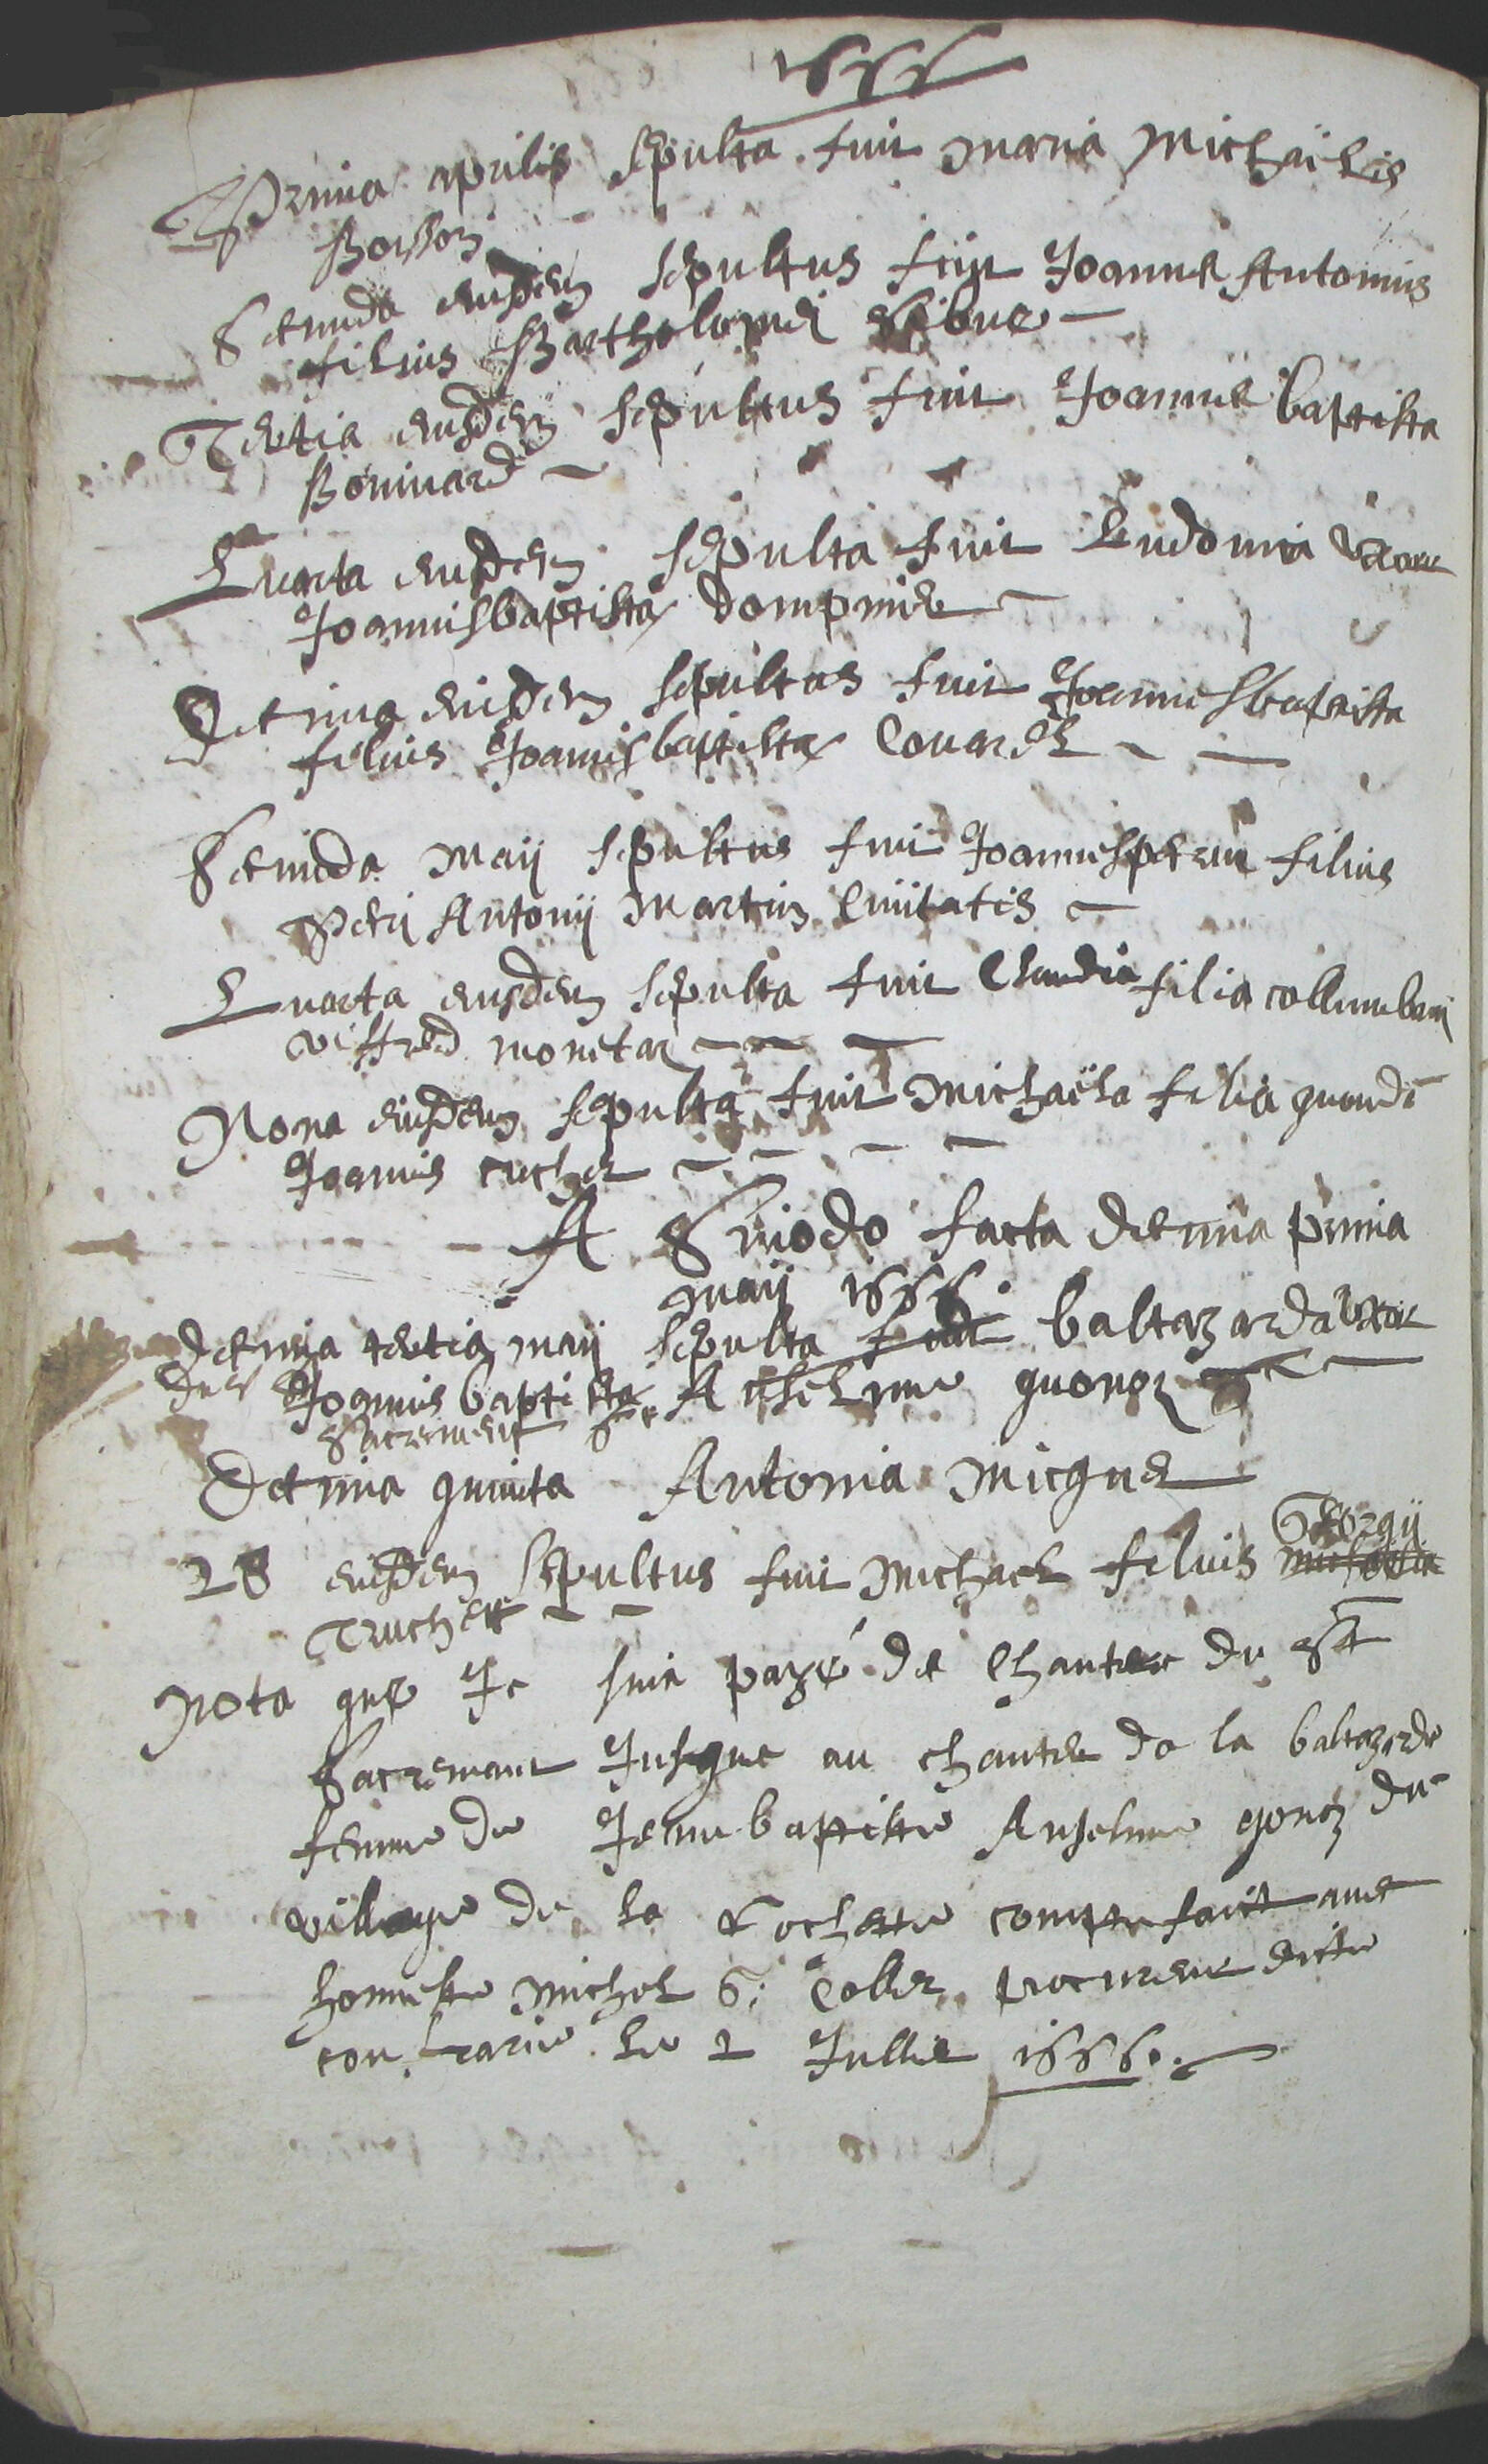 1666
Prima aprilis sepulta fuit maria Michaëlis
Borson
Secunda eiusdem sepultus fuit Joannes Antonius
filius Bartholomei Sibue
Tertia eiusdem sepultus fuit Joannes baptista
Boninard
Quarta eiusdem sepulta fuit Ludovica uxor
Joannisbaptistæ Dompnie
Decima eiusdem sepultus fuit Joannesbaptista
filius Joannisbaptistæ Couard
Secunda Maij sepultus fuit Joannes filius
Petri Antonij Martin Civitatis
Quarta eiusdem sepulta fuit Claudia filia collumbani
viffred monetar
Nona eiusdem sepulta fuit Michaëla filia quondã
Joannis cucher
A Sinodo facta decima prima
maij 1666.
decima tertia maij sepulta fuit baltazarda uxor
Joannis baptistæ Anselme gonoz
Sacrement St
Decima quinta Antonia Micque
28 eiusdem sepultus fuit Michael filius Georgij
Truchet
Nota que Je suis payé de Chantre du St
Sacrement Jusque au chantre de la baltazarde
femme de Jean baptiste Anselme gonoz du
village de la Rochette compte faict avec
honneste Michel G: Coller procureur dicte
confrarie le 2 Jullie 1666.